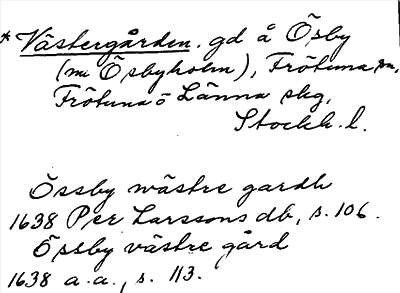 * Västergården. gd å Ösby
(nu Ösbyholm), Frötuna sn,
Frötuna o Länna skg,
Stockh. l.
Össby wästre gardh
1638 Per Larssons db, s. 106.
Öpsby västre gård
1638 a.a., s. 113.